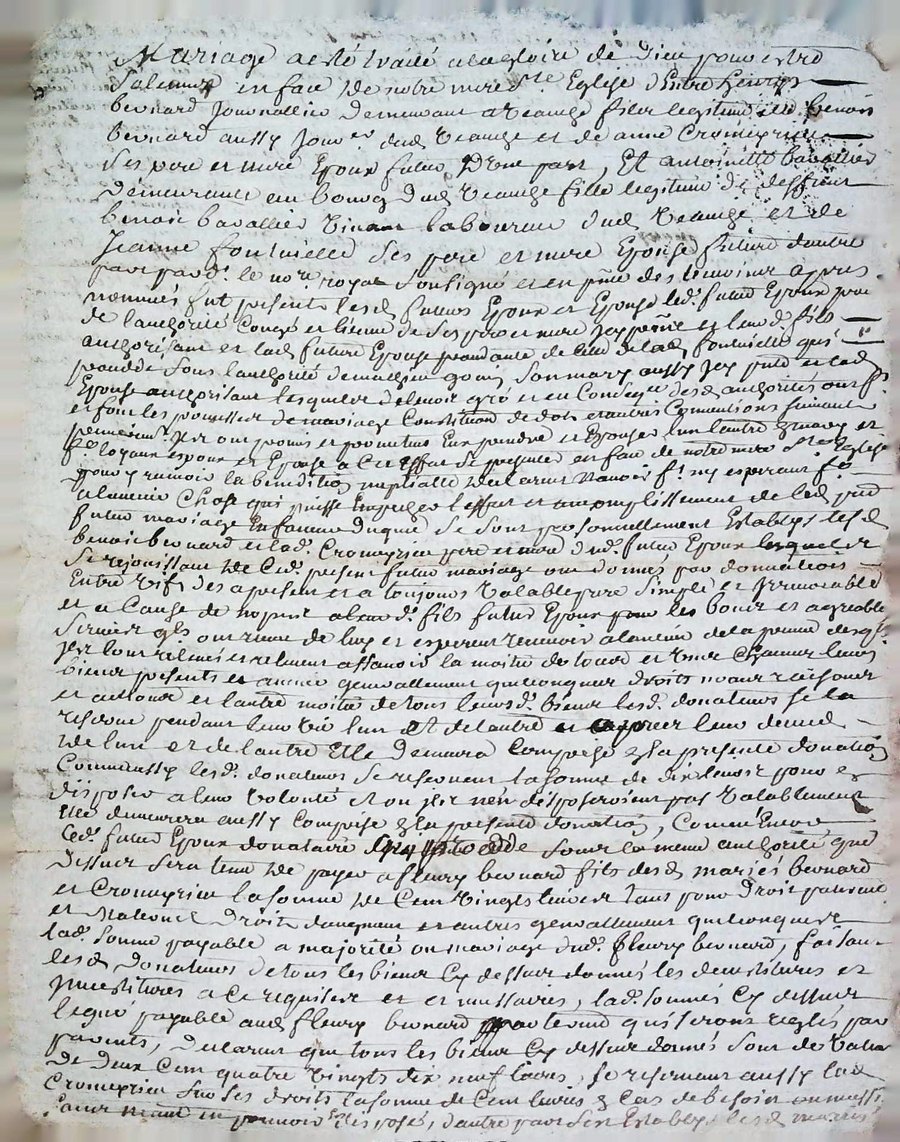 Mariage a esté traité a la gloire de dieu pour estre
Solemnisé en face de notre mere Ste Eglise Entre fleury
bernard Journallier demeurant a Veauge fils legitime de benois
bernard aussy Jour.er dud Veauge et de anne Cromeyrieu
Ses pere et mere Epoux futur d'une part, Et antoinette bavallier
demeurante au bourg dud Veauge fille legitime de deffunt
benois bavallier Vivant laboureur dud Veauge et de
Jeanne fontvielle Ses pere et mere Epouse future dautre
part pard.t le no.re royal Soussigné et en pñce des temoins apres
nommés fut presents lesd futurs Epoux et Epouse led. futur Epoux
de lauthorité Congé et licence de Ses pere et mere Jcy pñts et leur d. fils
authorisant et lad future Epouse de lad fontvielle
Sous lauthorité de Son mary aussy Jcy et lad
Epouse authorisant lesquels de leur gré et en Conseq.ce desd authorités ont f.s
et font les promesses de mariage Constitution de dots et autres Conventions Suivantes
premierem.t Jcy ont promis et promettent Eux prendre et Epouser lun lautre en vray et
loyaux Epoux et Epouse a Cet Effet Se presenter en face de notre mere Ste Eglise
pour y recevoir la benediction nuptialle
chose qui puisse Empecher leffet et accomplissement de lad pnt
futur mariage En faveur duquel Se Sont personnellement Establys lesd
benois bernard et lad. Cromeyrieu pere et mere dud. futur Epoux lesquels
Se rejouissant de Ced. present futur mariage ont donnés par donnation
Entre Vifs des a present et a toujours Valable pure Simple et Jrrevocable
et a Cause de nopces aleurd. fils futur Epoux pour les bons et agreables
Services qls ont receu de luy et esperent recevoir a lavenir de la preuve desqls
Jcy lont relevés et relevent assavoir la moitié de tous et Uns Chacuns leurs
biens presents et avenir generallement quelconques droits noms raisons
et actions et lautre moitié de tous leursd. biens lesd. donateurs Se la
reserve pendant leur Vie lun Et de lautre et apres leur deced
de lun et de lautre Elle demeura Comprise en la presente donation
Comm aussy lesd. donateurs Se reservent la somme de dix livres pour en
disposer a leur Volonté et ou Jcy nen disposeroient pas Valablement
Elle demeurera aussy Comprise en la presente donation, Comme Encore
Ced. futur Epoux donataire Sous la meme authorité que
dessus Sera tenu de payer a fleury bernard fils desd mariés bernard
et Cromeyrieu la somme de Cent Vingts livres tant pour droit paternel
et Maternel Droit daugment et autres generallement quelconques
lad. Somme payable a majorité ou mariage dud. fleury bernard, faisant
lesd donateurs de tous les biens Cy dessus donnés les devestitures et
Jnvestitures a Ce requises et necessaires, lad. Somme Cy dessus
legué payable aud fleury bernard par terme quis seront reglés par
parents, declarent que tous les biens Cy dessus donnés Sont de Valeur
de deux Cent quatre Vingts dix neuf livres, Se reservant aussy lad
Cromeyrieu Sur Ses droits la somme de Cent livres en Cas de besoin
pouvoir disposé, dautre part Sen Establys lesd mariés